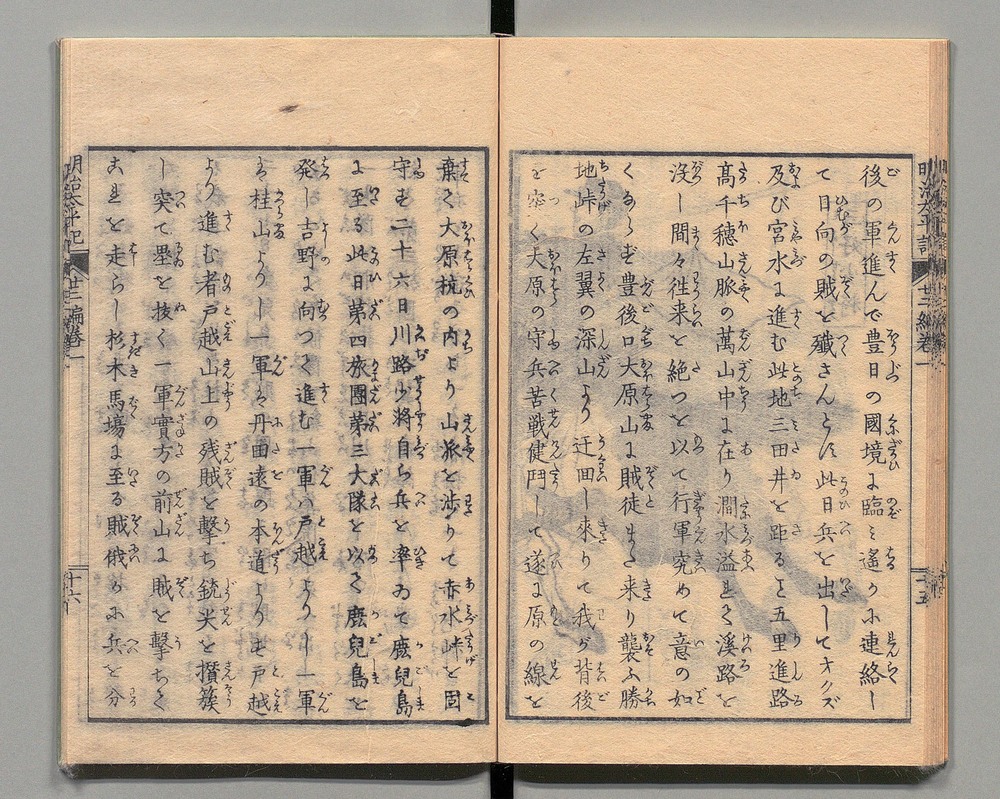 後の軍進んで豊日の國境に臨ミ遙かに連絡し
て日向の賊を殲さんとす此日兵を出してオクズ
及び宮水に進む此地三田井を距ると五里進路
髙千穗山脈の萬山中に在り澗水溢まく溪路を
沒し間々徃来を絶つを以て行軍究めて意の如
くならず豊後口大原山に賊徒また来り襲ふ勝
地峠の左翼の深山より迂回し來りて我が背後
を突く大原の守兵苦戦健鬥して遂に原の線を
棄て大原杭の内より山脉を渉りて赤水峠を固
守す二十六日川路少将自ら兵を率ゐて鹿兒島
に至る此日第四旅團第三大隊を以て鹿兒島を
発し吉野に向つて進む一軍ハ戸越よりし一軍
ハ桂山よりし一軍ハ丹曲遠の本道よりす戸越
より進む者戸越山上の残賊を擊ち銃尖を攅簇
し突て壘を抜く一軍實方の前山に賊を擊ちて
之を走らし杉木馬塲に至る賊俄かに兵を分
明治太平記
廿三編巻一
十五
明治太平記
廿三編巻一
十六